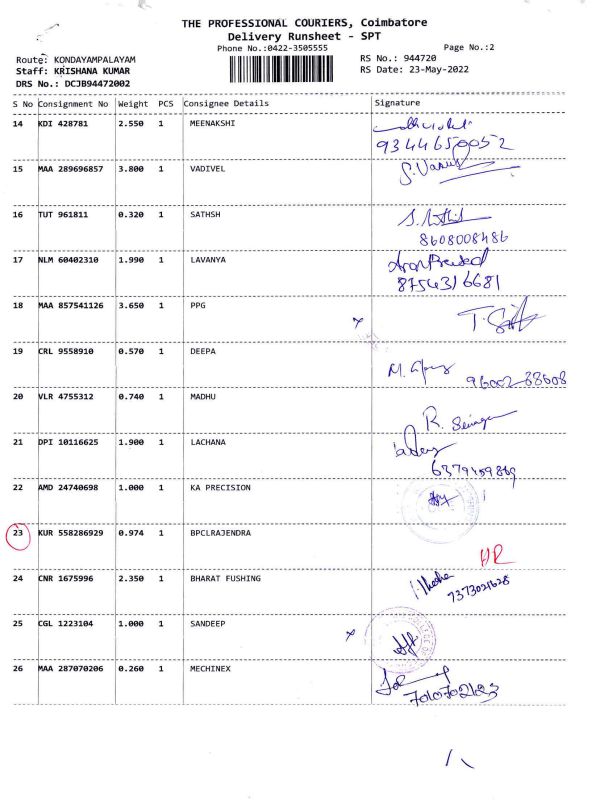 THE PROFESSIONAL COURIERS, Coimbatore
Delivery Runsheet - SPT
Phone No.:0422-3505555 Page No.:2
Route: KONDAYAMPALAYAM RS No.: 944720
Staff: KRISHANA KUMAR RS Date: 23-May-2022
DRS No.: DCJB94472002
S No Consignment No Weight PCS Consignee Details Signature
14 KDI 428781 2.550 1 MEENAKSHI
9344650052
15 MAA 289696857 3.800 1 VADIVEL
16 TUT 961811 0.320 1 SATHSH
8608008486
17 NLM 60402310 1.990 1 LAVANYA
8754316681
18 MAA 857541126 3.650 1 PPG
19 CRL 9558910 0.570 1 DEEPA
96002-88608
20 VLR 4755312 0.740 1 MADHU
21 DPI 10116625 1.900 1 LACHANA
22 AMD 24740698 1.000 1 KA PRECISION
23 KUR 558286929 0.974 1 BPCLRAJENDRA
24 CNR 1675996 2.350 1 BHARAT FUSHING
7373021628
25 CGL 1223104 1.000 1 SANDEEP
26 MAA 287070206 0.260 1 MECHINEX